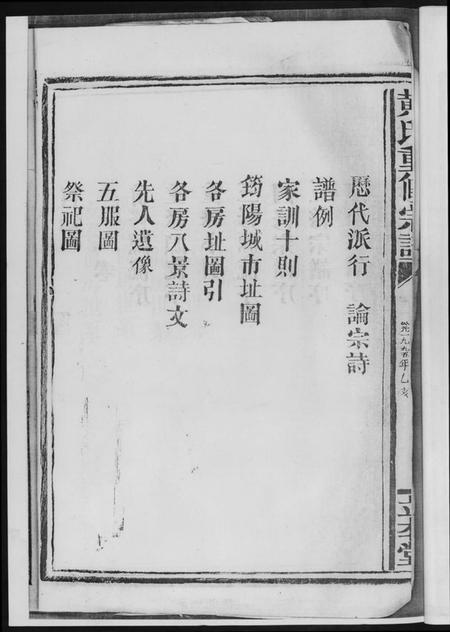 黄氏重修宗譜
公元一九九五年乙亥
歷代派行 諭宗詩
譜例
家訓十則
筠陽城市址圖
各房址圖引
各房八景詩文
先人遺像
五服圖
祭祀圖